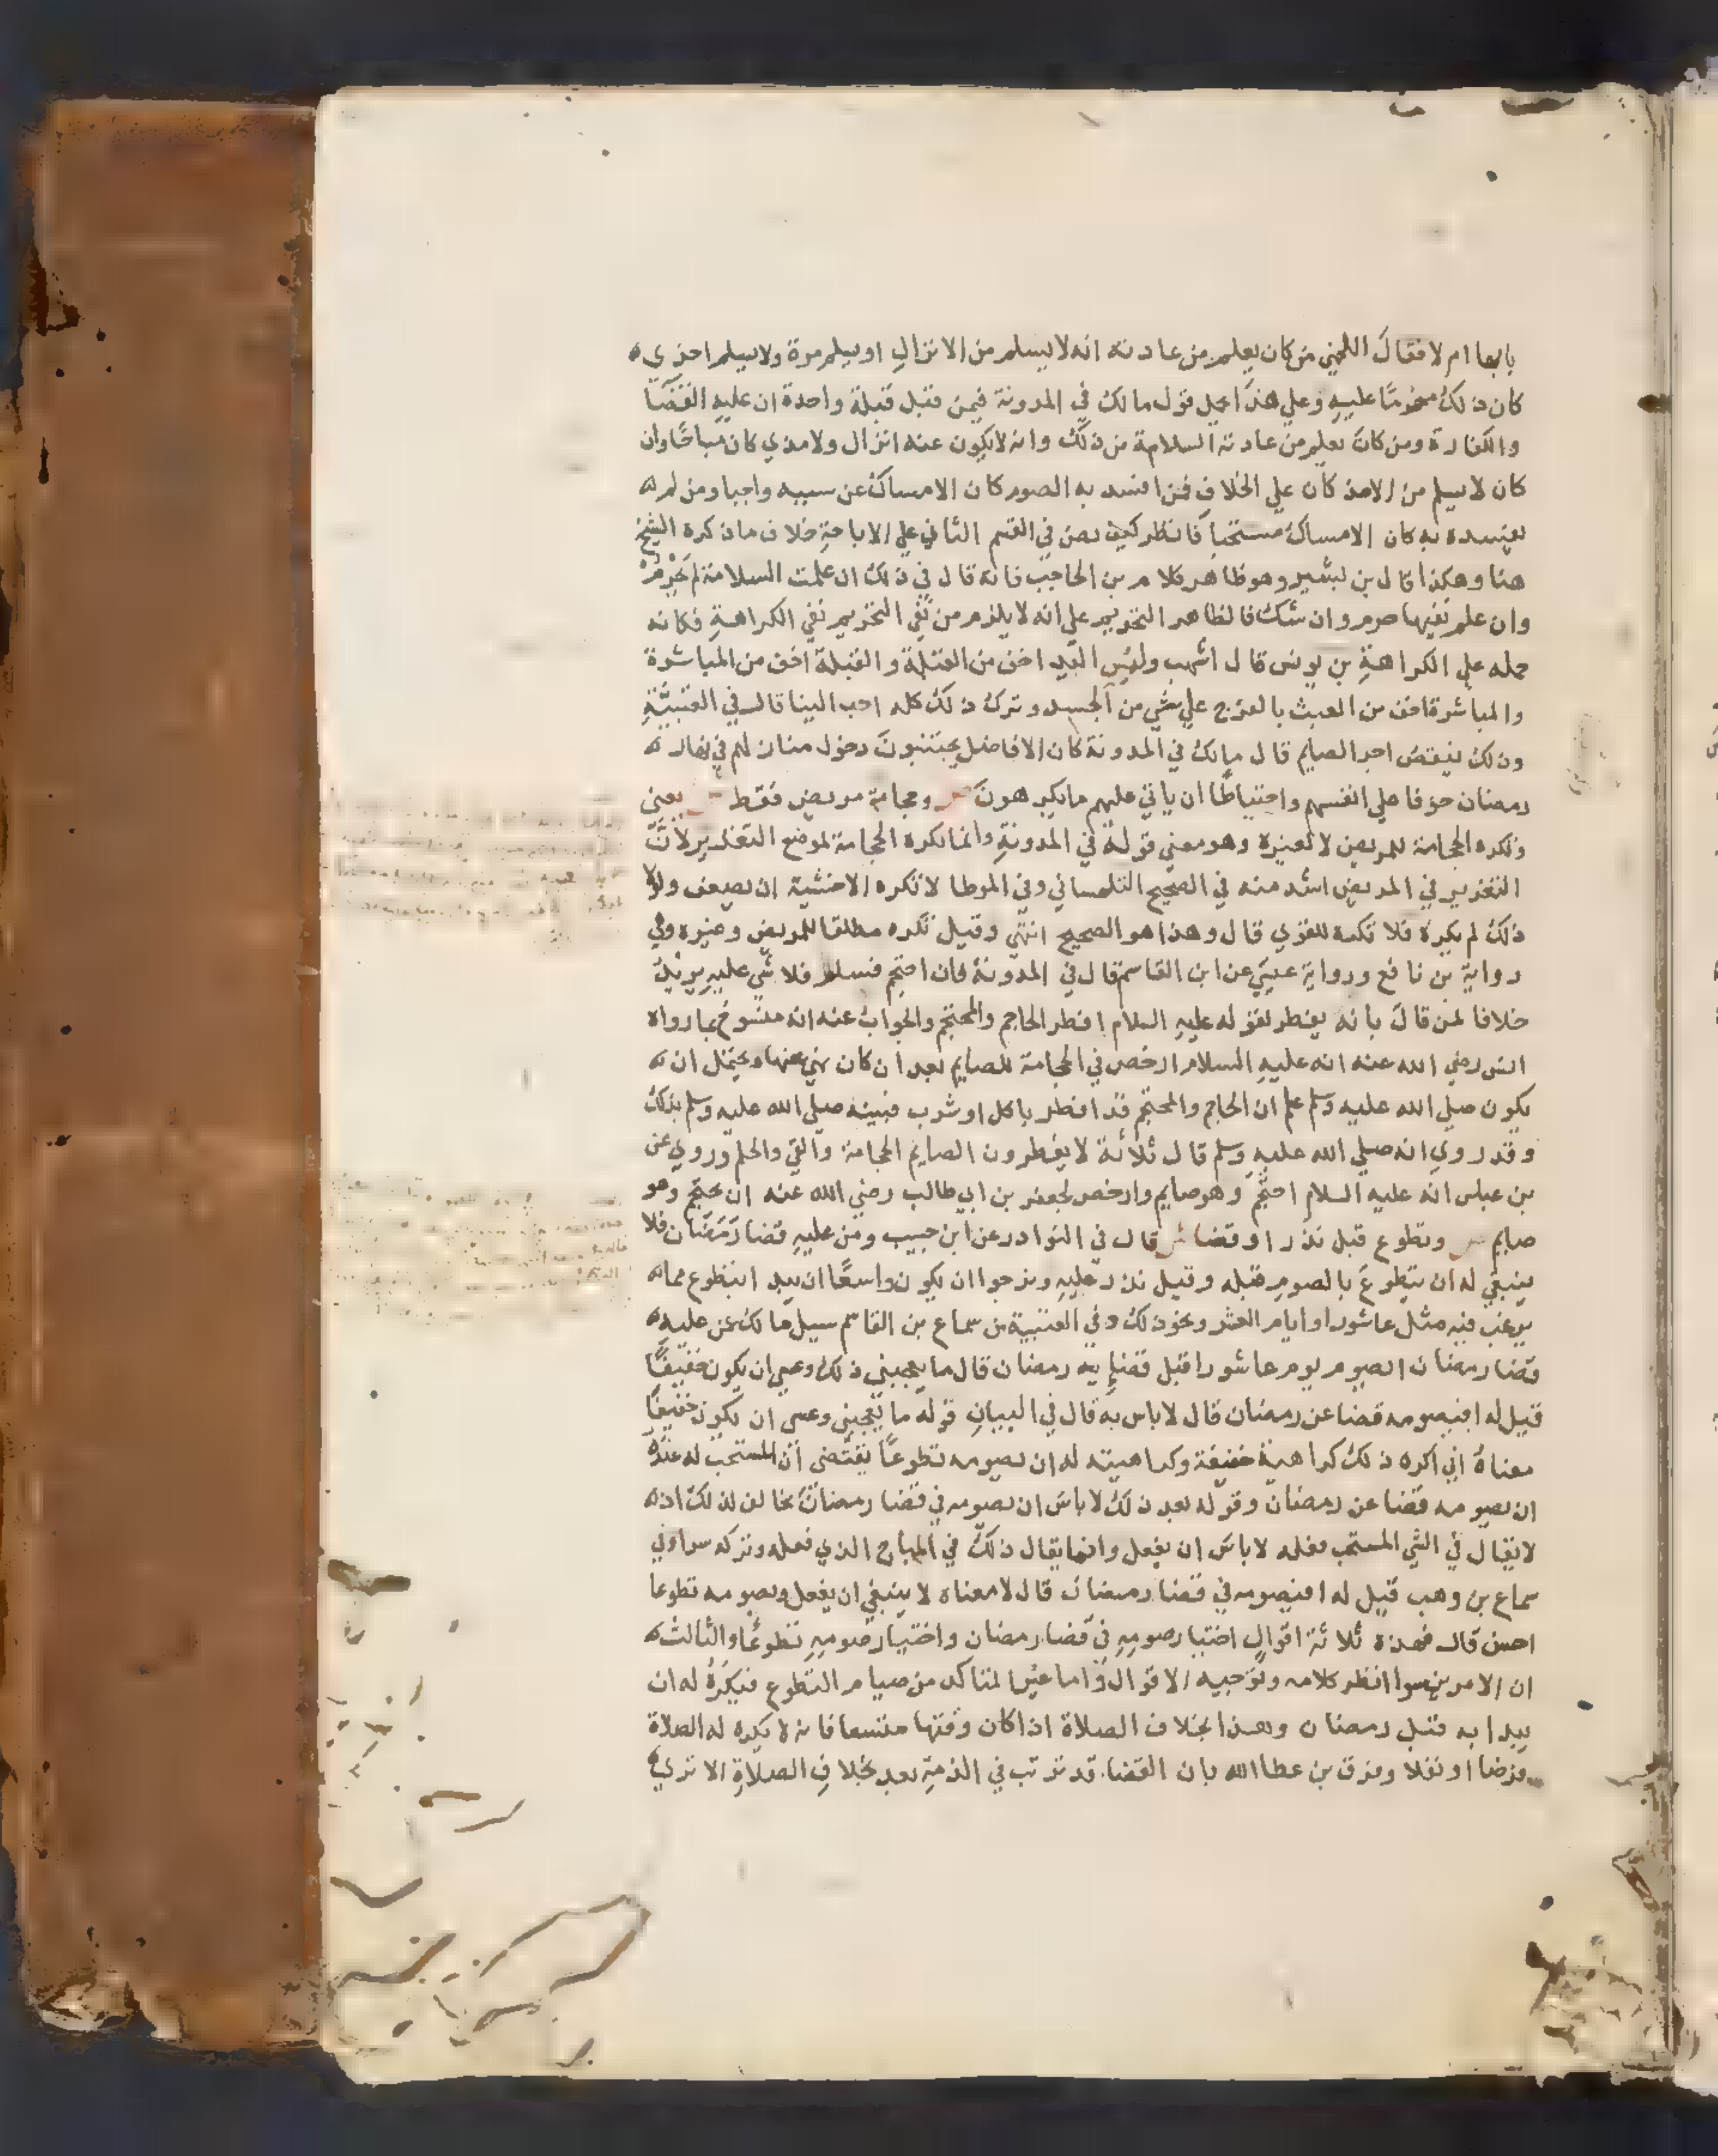 بابها ام لا فقال اللخمي من كان يعلم من عادته انه لا يسلم من الانزال او يسلم مرة ولا يسلم اخري
كان ذلك محرما عليه وعلي هذا يحمل قول مالك في المدونة فيمن قبل قبلة واحدة ان عليه القضا
والكفارة ومن كان يعلم من عادته السلامة من ذلك وانه لا يكون عنه انزال ولا مذي كان مباحا وان
كان لا يسلم من الامذ كان علي الخلاف فمن افسد به الصوم كان الامساك عن سببه واجبا ومن لم
يفسده به كان الامساك مستحبا فانظر كيف نص في القسم الثاني علي الاباحة خلاف ما ذكره الشيخ
هنا وهكذا قال بن بشير وهو ظاهر كلام بن الحاجب فانه قال في ذلك ان علمت السلامة لم يحرم
وان علم نفيها حرم وان شك فالظاهر التحريم علي انه لا يلزم من نفي التحريم نفي الكراهة فكانه
حمله علي الكراهة بن يونس قال اشهب ولمس اليد اخف من القبلة والقبلة اخف من المباشرة
والمباشرة اخف من العبث بالفرج علي شي من الجسد وترك ذلك كله احب الينا قال في العتبية
وذلك ينقص اجر الصايم قال مالك في المدونة كان الافاضل يجتنبون دخول منازلهم في نهار
رمضان خوفا علي انفسهم واحتياطا ان ياتي عليهم ما يكرهون وحجامة مريض فقط يعني
وتكره الحجامة للمريض لا لغيره وهو معني قوله في المدونة وانما تكره الحجامة لموضع التغرير لان
التغرير في المريض اشد منه في الصحيح التلمساني وفي الموطا لا تكره الا خشية ان يضعف ولولا
ذلك لم يكره فلا تكره للقوي قال وهذا هو الصحيح انتهي وقيل تكره مطلقا للمريض وغيره وفي
رواية بن نافع ورواية عيسي عن ابن القاسم قال في المدونة فان احتجم فسلم فلا شي عليه يريد
خلافا لمن قال بانه يفطر لقوله عليه السلام افطر الحاجم والمحتجم والجواب عنه انه منسوخ بما رواه
انس رضي الله عنه انه عليه السلام ارخص في الحجامة للصايم بعد ان كان نهي عنها ويحتمل ان
يكون صلي الله عليه وسلم علم ان الحاجم والمحتجم قد افطر باكل او شرب فبينه صلي الله عليه وسلم بذلك
وقد روي انه صلي الله عليه وسلم قال ثلاثة لا يفطرون الصايم الحجامة والقي والحلم وروي عن
بن عباس انه عليه السلام احتجم وهو صايم وارخص لجعفر بن ابي طالب رضي الله عنه ان يحتجم وهو
صايم وتطوع قبل نذر او قضا قال في النوادر عن ابن حبيب ومن عليه قضا رمضان فلا
ينبغي له ان يتطوع بالصوم قبله وقيل نذر عليه ونرجوا ان يكون واسعا ان يبدا بتطوع مما
يرغب فيه مثل عاشورا وايام العشر ونحو ذلك وفي العتبية من سماع بن القاسم سيل مالك عمن عليه
قضا رمضان ايصوم يوم عاشورا قبل قضايه رمضان قال ما يعجبني ذلك وعسي ان يكون خفيفا
قيل له افيصومه قضا عن رمضان قال لا باس به قال في البيان قوله ما يعجبني وعسي ان يكون خفيفا
معناه اني اكره ذلك كراهية خفيفة وكراهيته له ان يصومه تطوعا يقتضي ان المستحب له عنده
ان يصومه قضا عن رمضان وقوله بعد ذلك لا باس ان يصومه في قضا رمضان مخالف لذلك اذ
لا يقال في الشي المستحب فعله لا باس ان يفعل وانما يقال ذلك في المباح الذي فعله وتركه سوا وفي
سماع بن وهب قيل له افيصومه في قضا رمضان قال لا معناه لا ينبغي ان يفعل ويصومه تطوعا
احسن قال فهذه ثلاثة اقوال اختيار صومه في قضا رمضان واختيار صومه تطوعا والثالث
ان الامرين سوا انظر كلامه وتوجيه الاقوال واما غير المتاكد من صيام التطوع فيكره له ان
يبدا به قبل رمضان وهذا بخلاف الصلاة اذا كان وقتها متسعا فانه لا يكره له الصلاة
فرضا او نفلا وفرق بن عطا الله بان القضا قد ترتب في الذمة بعد بخلاف الصلاة الا تري